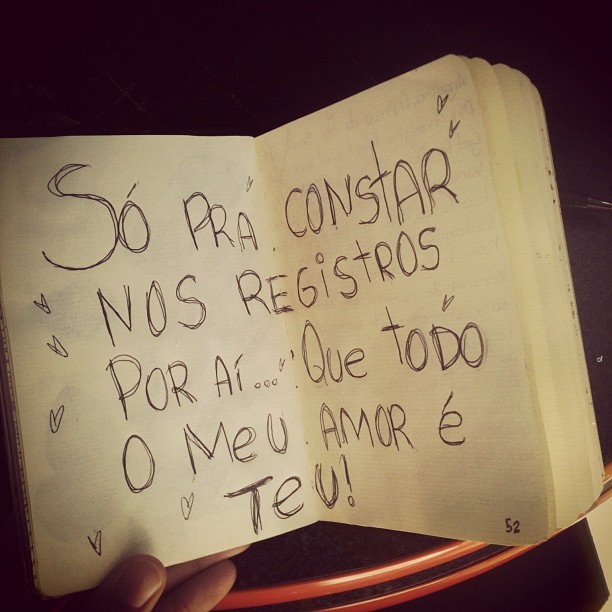 Só PRÁ CONSTAR
NOS REGISTROS
POR AÍ... Que todo
O MeU AMOR é
TeU!
52